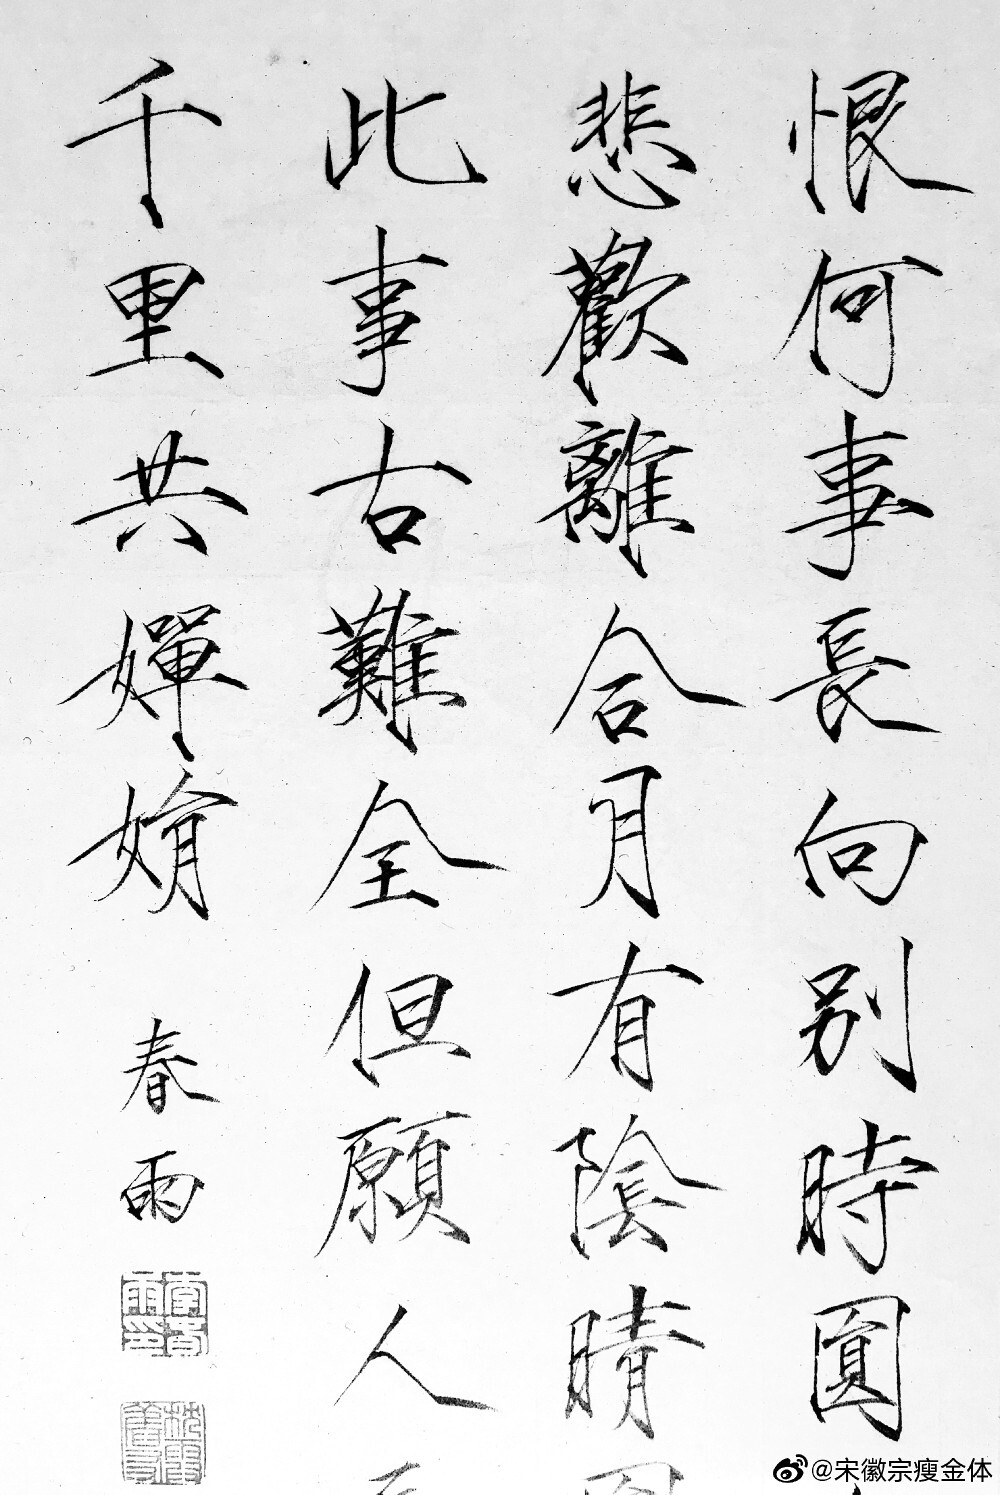 恨何事長向別時圓
悲歡離合月有陰晴
此事古難全但願人
千里共嬋娟
春雨
@宋徽宗瘦金体